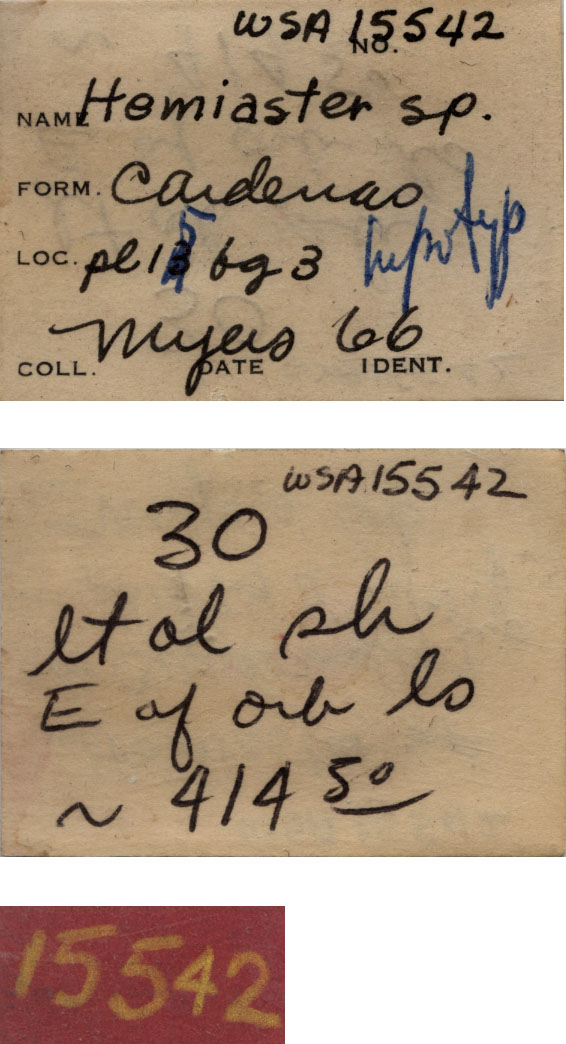 WSA 15542
NO.
NAME Hemiaster sp.
FORM. Cardenas
LOC. pl 15 bg 3 hypotyp
Myers 66
COLL. DATE IDENT.
WSA 15542
30
lt ol sh
E of orb ls
~ 414 50
15542